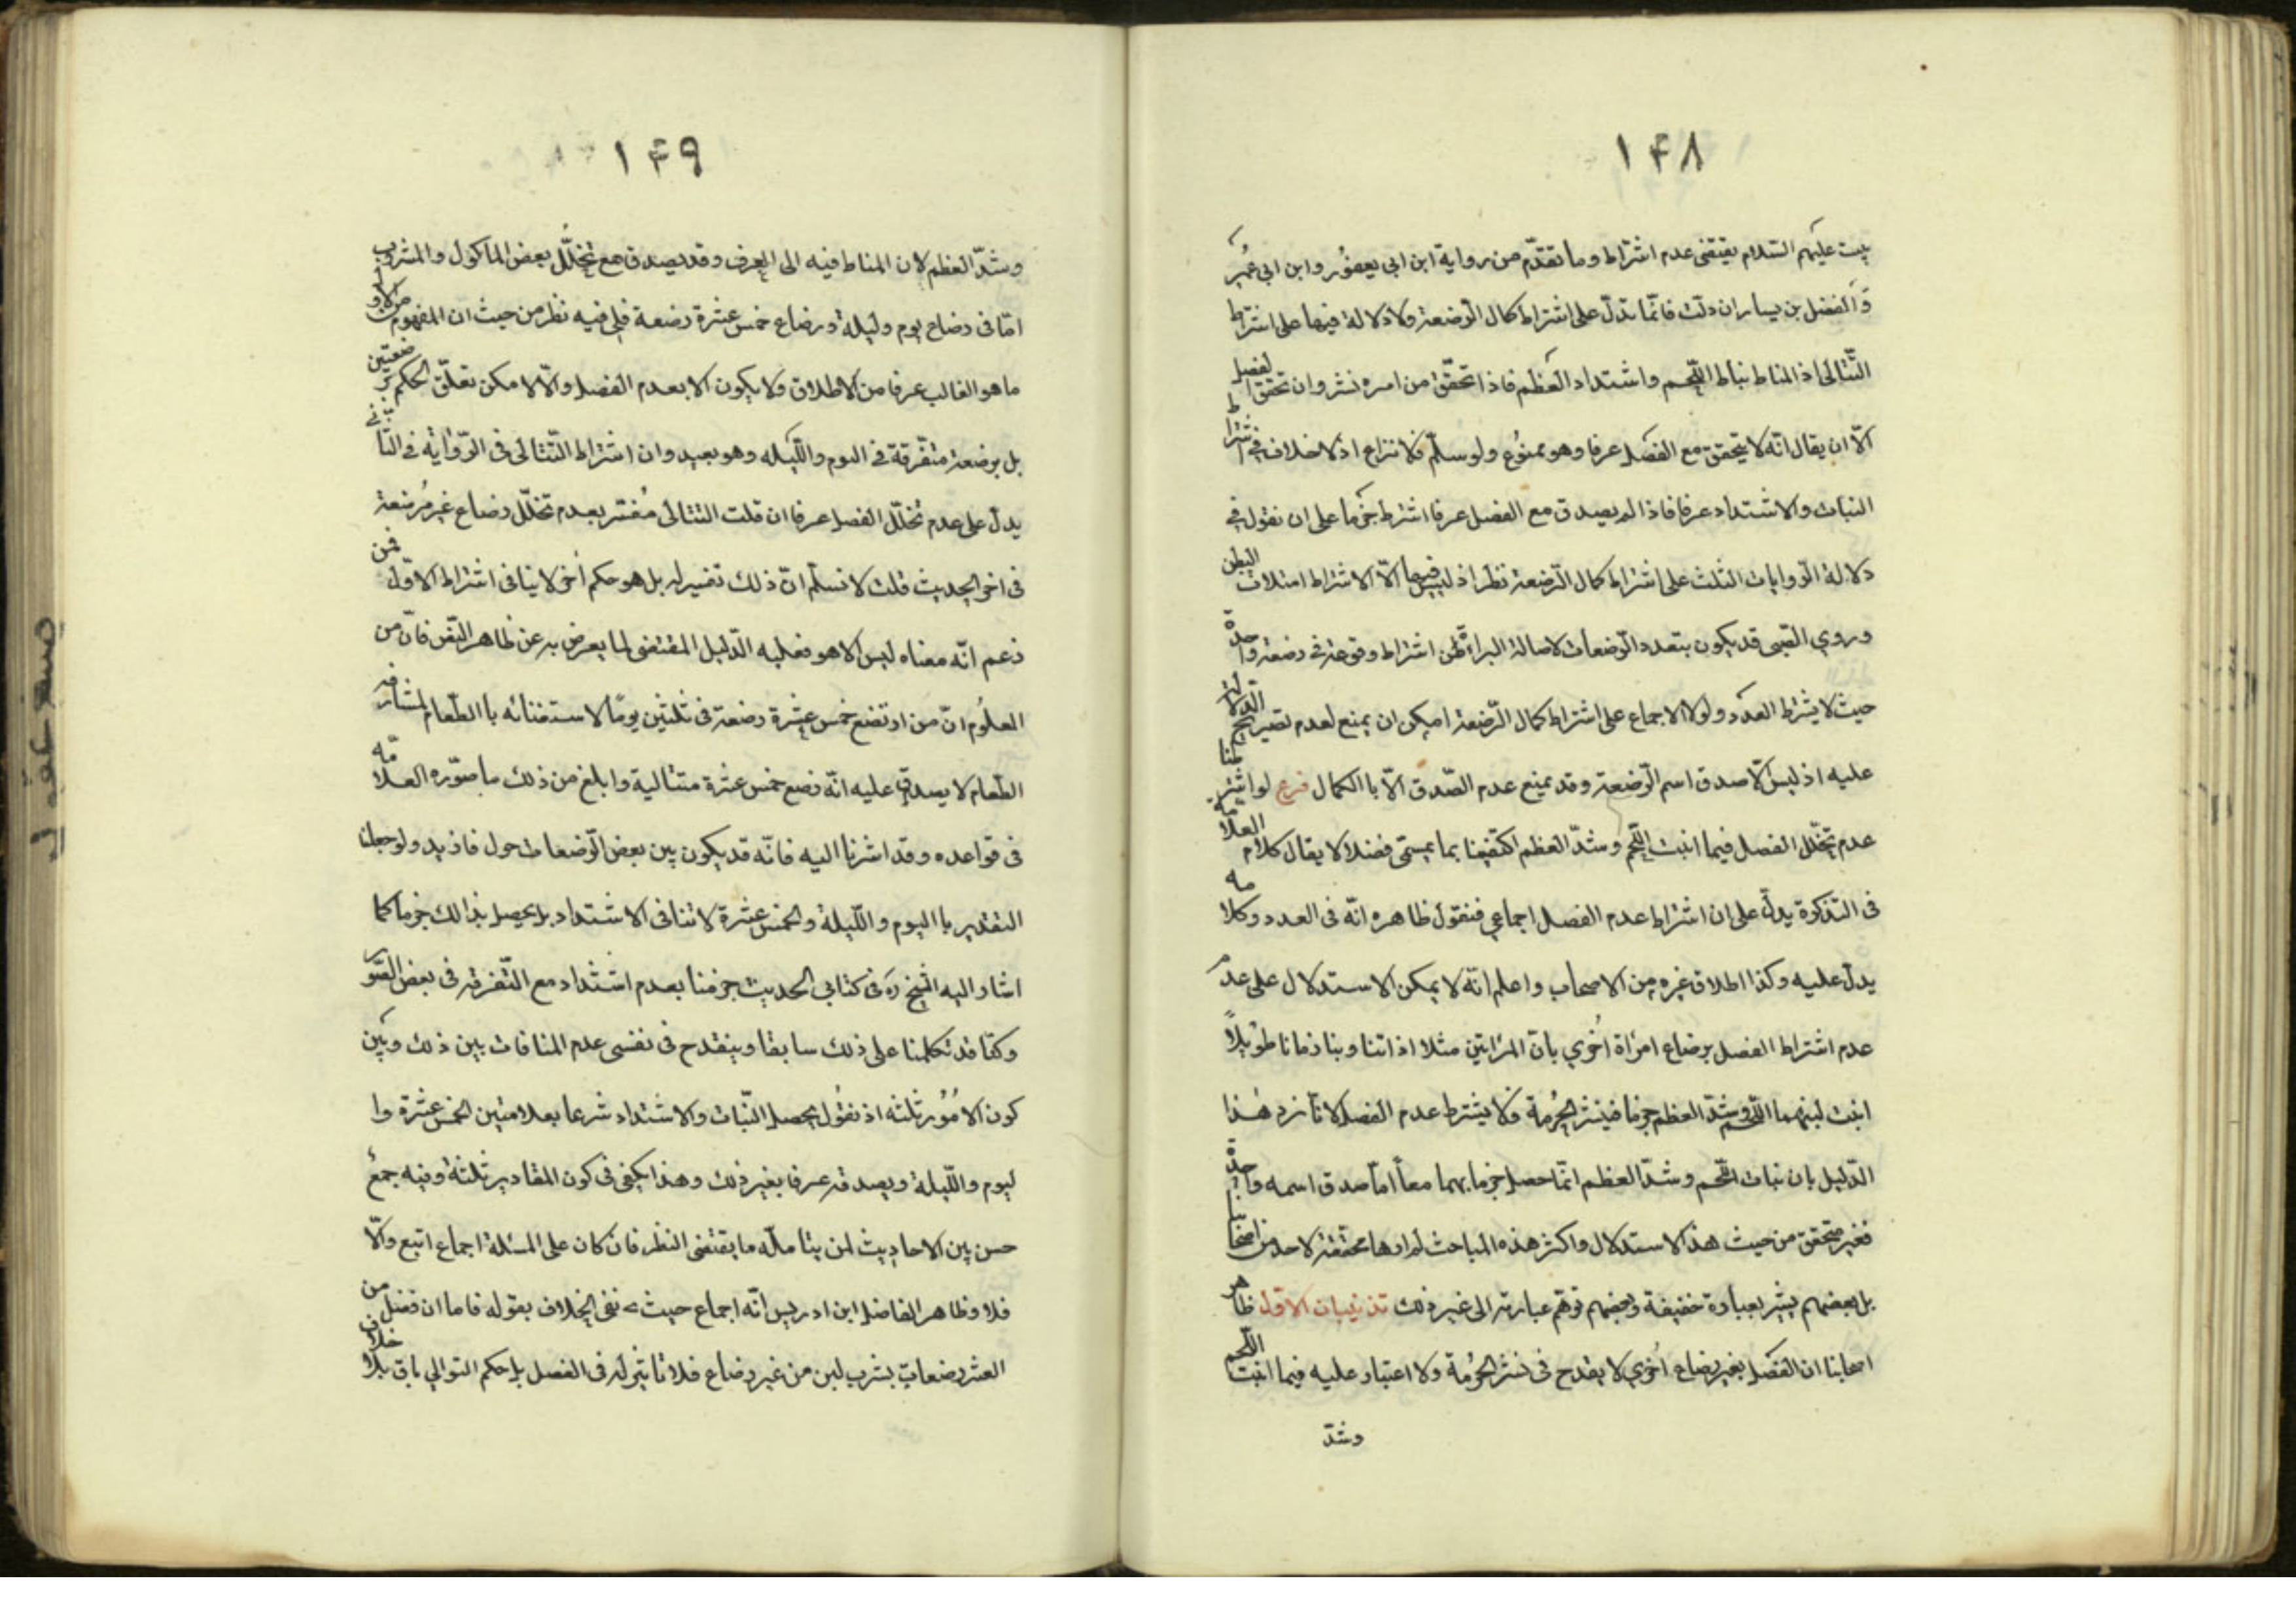 ۱۴۸
بيت عليهم السّلام يقتضى عدم اشتراط وما تقدّم من رواية ابن ابي يعفور وابن ابي عمير
والفضل بن يسار ان دلّت فانّما تدلّ على اشتراط كمال الرّضعة ولا دلالة فيها على اشتراط
التّتالى اذ المناط نبات اللّحم واشتداد العظم فاذا تحقّق من امره نشر وان تحقق الفصل
الّا ان يقال انّه لا يتحقق مع الفصل عرفا وهو ممنوع ولو سلّم فلا نزاع اذ لا خلاف في اشتراط
النبات والاشتداد عرفا فاذا لم يصدق مع الفصل عرفا اشترط جزما على ان نقول في
دلالة الرّوايات الثلث على اشتراط كمال الرّضعة نظر اذ ليس فيها الّا الاشتراط امتلاء البطن
وروي الصّبى قد يكون بتعدد الرّضعات لاصالة البراءة من اشتراط وقوعه في رضعة واحدة
حيث لا يشترط العدد ولولا الاجماع على اشتراط كمال الرّضعة امكن ان يمنع لعدم تصريح الدّلالة
عليه اذ ليس الّا صدق اسم الرّضعة وقد يمنع عدم الصّدق الّا باالكمال فرع لو اشترطنا
عدم تخلّل الفصل فيما انبت اللّحم وشدّ العظم اكتفينا بما يسمّى فصلا لا يقال كلام العلّامة
فى التذكرة يدلّ على ان اشتراط عدم الفصل اجماعي فنقول ظاهره انّه فى العدد وكلامه
يدلّ عليه وكذا اطلاق غيره من الاصحاب واعلم انّه لا يمكن الاستدلال على عدم
عدم اشتراط الفصل برضاع امرأة اخرى بانّ المرأتين مثلا اذا تناوبنا زمانا طويلاً
انبت لبنهما اللّحم وشدّ العظم جزما فينشر الحرمة فلا يشترط عدم الفصل لانا نردّ هذا
الدّليل بان نبات اللّحم وشدّ العظم انّما حصل جزما بهما معاً امّا صدق اسمه واحدة
فغير متحقق من حيث هذا الاستدلال واكثر هذه المباحث لم ارها محقّقة لاحد من اصحابنا
بل بعضهم يشير بعبارة خفيفة وبعضهم توهّم عبارته الى غير ذلك تذنيبان الاوّل ظاهر
اصحابنا ان الفصل بغير رضاع اخرى لا يقدح فى نشر الحرمة ولا اعتبار عليه فيما انبت اللّحم
وشدّ
۱۴۹
وشدّ العظم لان المناط فيه الى العرف وقد يصدق مع تخلّل بعض الماكول والمشروب
امّا فى رضاع يوم وليلة ورضاع خمس عشرة رضعة فلى فيه نظر من حيث ان المفهوم من الاول
ما هو الغالب عرفا من الاطلاق ولا يكون الا بعدم الفصل والّا لامكن تعلّق الحكم برضعتين
بل برضعة متفرّقة فى اليوم واللّيله وهو بعيد وان اشتراط التّتالى فى الرّواية في الثّاني
يدلّ على عدم تخلّل الفصل عرفا ان قلت التتالى مفسّر بعدم تخلّل رضاع غير مرضعة
فى اخر الحديث قلت لا نسلّم انّ ذلك تفسير له بل هو حكم اخر لا ينافى اشتراط الاوّل فمن
زعم انّه معناه ليس الا هو فعليه الدّليل المقتضى لما يعرض به عن ظاهر النّص فانّ من
المعلوم انّ من ارتضع خمس عشرة رضعة فى ثلثين يومًا لاستغنائه باالطّعام
الطّعام لا يصدق عليه انّه رضع خمس عشرة متتالية وابلغ من ذلك ما صوّره العلّامه
فى قواعده وقد اشرنا اليه فانّه قد يكون بين بعض الرّضعات حول فازيد ولو جعلنا
التقدير باليوم واللّيلة والخمس عشرة لا تنافى الاشتداد بل يحصل بذالك جزما كما
اشار اليه الشّيخ ره فى كتابي الحديث جزمنا بعدم اشتداد مع التّفرقه فى بعض الصّور
وكنّا قد تكلمنا على ذلك سابقا وينقدح فى نفسى عدم المنافات بين ذلك وبين
كون الامور ثلثه اذ نقول يحصل النّبات والاشتداد شرعا بعلامتين الخمس عشرة وا
ليوم واللّيلة ويصدقه عرفا بغير ذلك وهذا يكفى فى كون المقادير ثلثة وفيه جمع
حسن بين الاحاديث لمن يتامله ما يقتضى النظر فان كان على المسئلة اجماع اتبع والّا
فلا وظاهر الفاضل ابن ادريس انّه اجماع حيث نفى الخلاف بقوله فاما ان فصل من
العشر رضعات بشرب لبن من غير رضاع فلا تاثير له فى الفصل بل حكم التوالي باق بلا خلاف